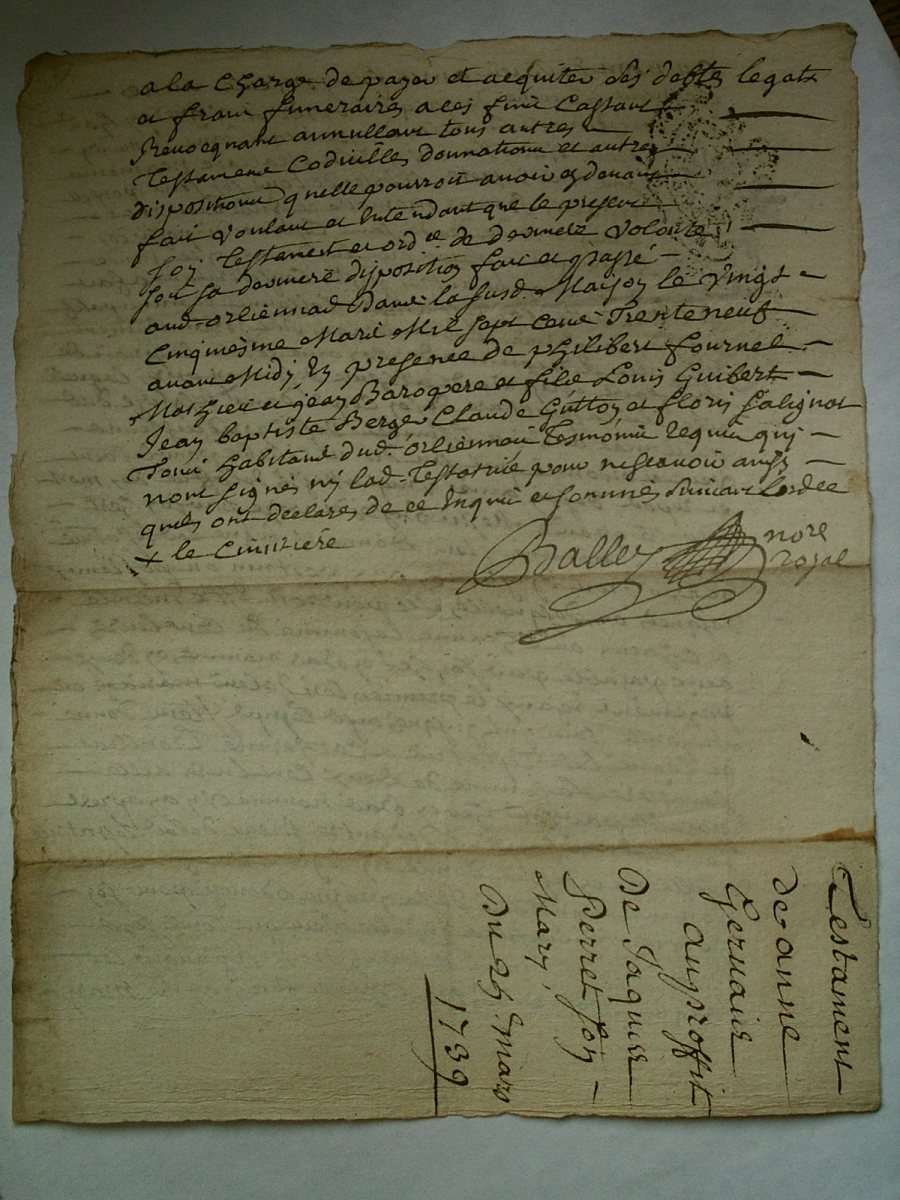 a la charge de payer et acquiter ses debtes legats
et frais funeraires a ces fins cassant
Revocquant annullant tous autres
Testaments Codicilles donnations et autres
dispositions qu'elle pourroit avoir cy devant
fait voulant et entendant que le present
soy Testament et ord.ce de derniere volonté
soit sa derniere disposition fait et passé
aud. orliennas dans la susd. Maison le vingt
Cinquiesme Mars Mil sept cent Trente neuf
avant Midy, En presence de philibert fournel
Mathieu et jean BaroPere et fils Louis Guibert
Jean baptiste Berger Claude Guttoy et floris Salignat
Tous habitans dud. orliennas Tesmoins lequels qui
nont signes ny lad. Testatrice pour ne scavoir ainsy
quils ont declares de ce Enquis et sommés suivant Lordce
x le Cimitiere
Balley nore
royal
Testament
de anne
Gervais
au proffit
De Jaques
Perret son
Mary,
Du 25. mars
1739